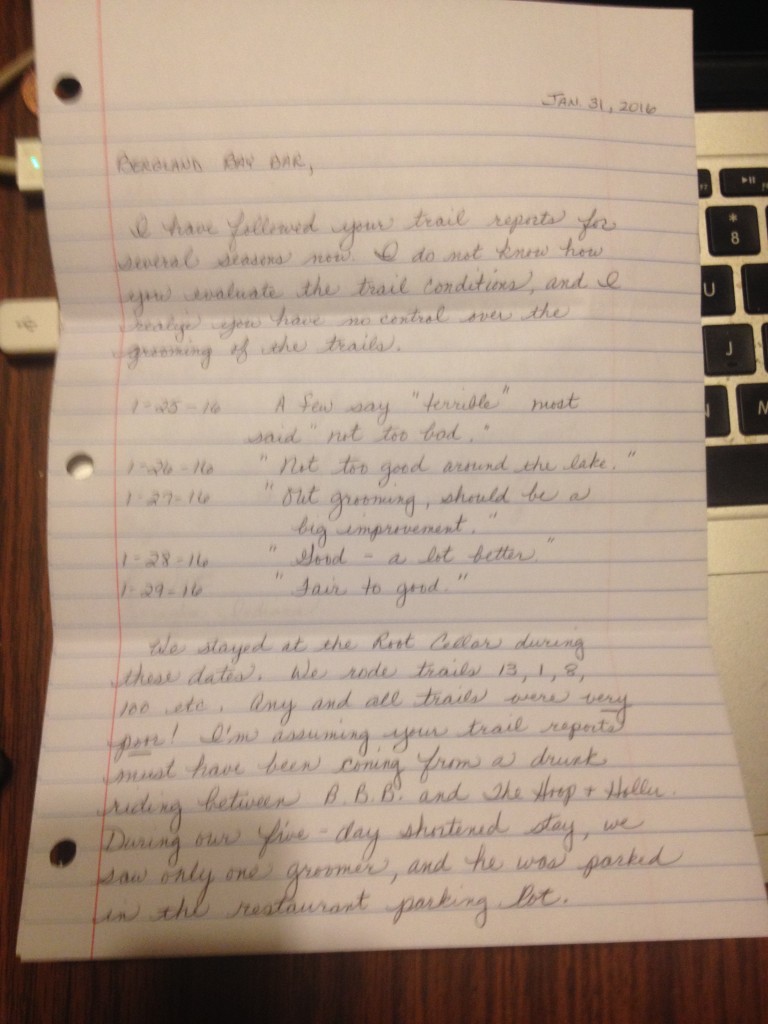 JAN. 31, 2016
BERGLAND BAY BAR,
I have followed your trail reports for
several seasons now. I do not know how
you evaluate the trail conditions, and I
realize you have no control over the
grooming of the trails.
1-25-16 A few say "terrible" most
said "not too bad."
1-26-16 "Not too good around the lake."
1-27-16 "Out grooming, should be a
big improvement."
1-28-16 "Good - a lot better."
1-29-16 "Fair to good."
We stayed at the Root Cellar during
these dates. We rode trails 13, 1, 8,
100 etc. Any and all trails were very
poor! I'm assuming your trail reports
must have been coming from a drunk
riding between B.B.B. and The Hoop & Holler.
During our five-day shortened stay, we
saw only one groomer, and he was parked
in the restaurant parking lot.
*
8
U
J
N
M